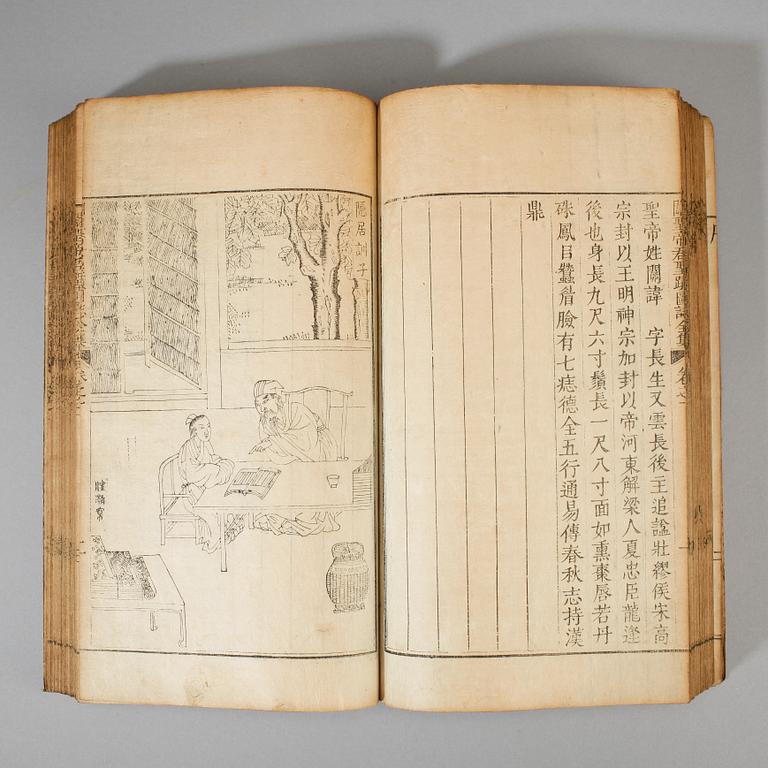 關聖帝君聖蹟圖誌全集 卷之一
聖帝姓關諱 字長生又雲長後主追諡壯繆侯宋高
宗封以王明神宗加封以帝河東解梁人夏忠臣龍逢
後也身長九尺六寸鬚長一尺八寸面如熏棗唇若丹
硃鳳目蠶眉臉有七痣德全五行通易傳春秋志持漢
鼎
隱居訓子